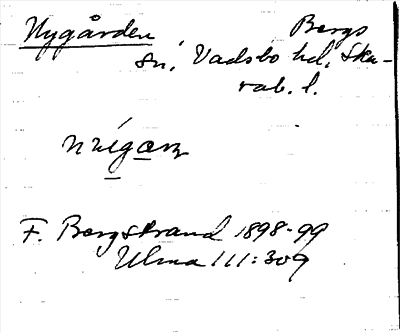 Nygården Bergs
sn, Vadsbo hd, Ska-
rab. l.
F. Bergstrand 1898-99
Ulma 111:309